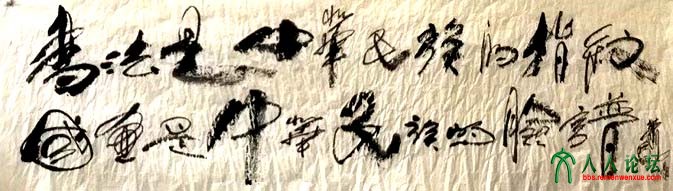 書法是中華民族的指紋
國畫是中華民族的臉譜
人人论坛
bbs.renrenwenxue.com